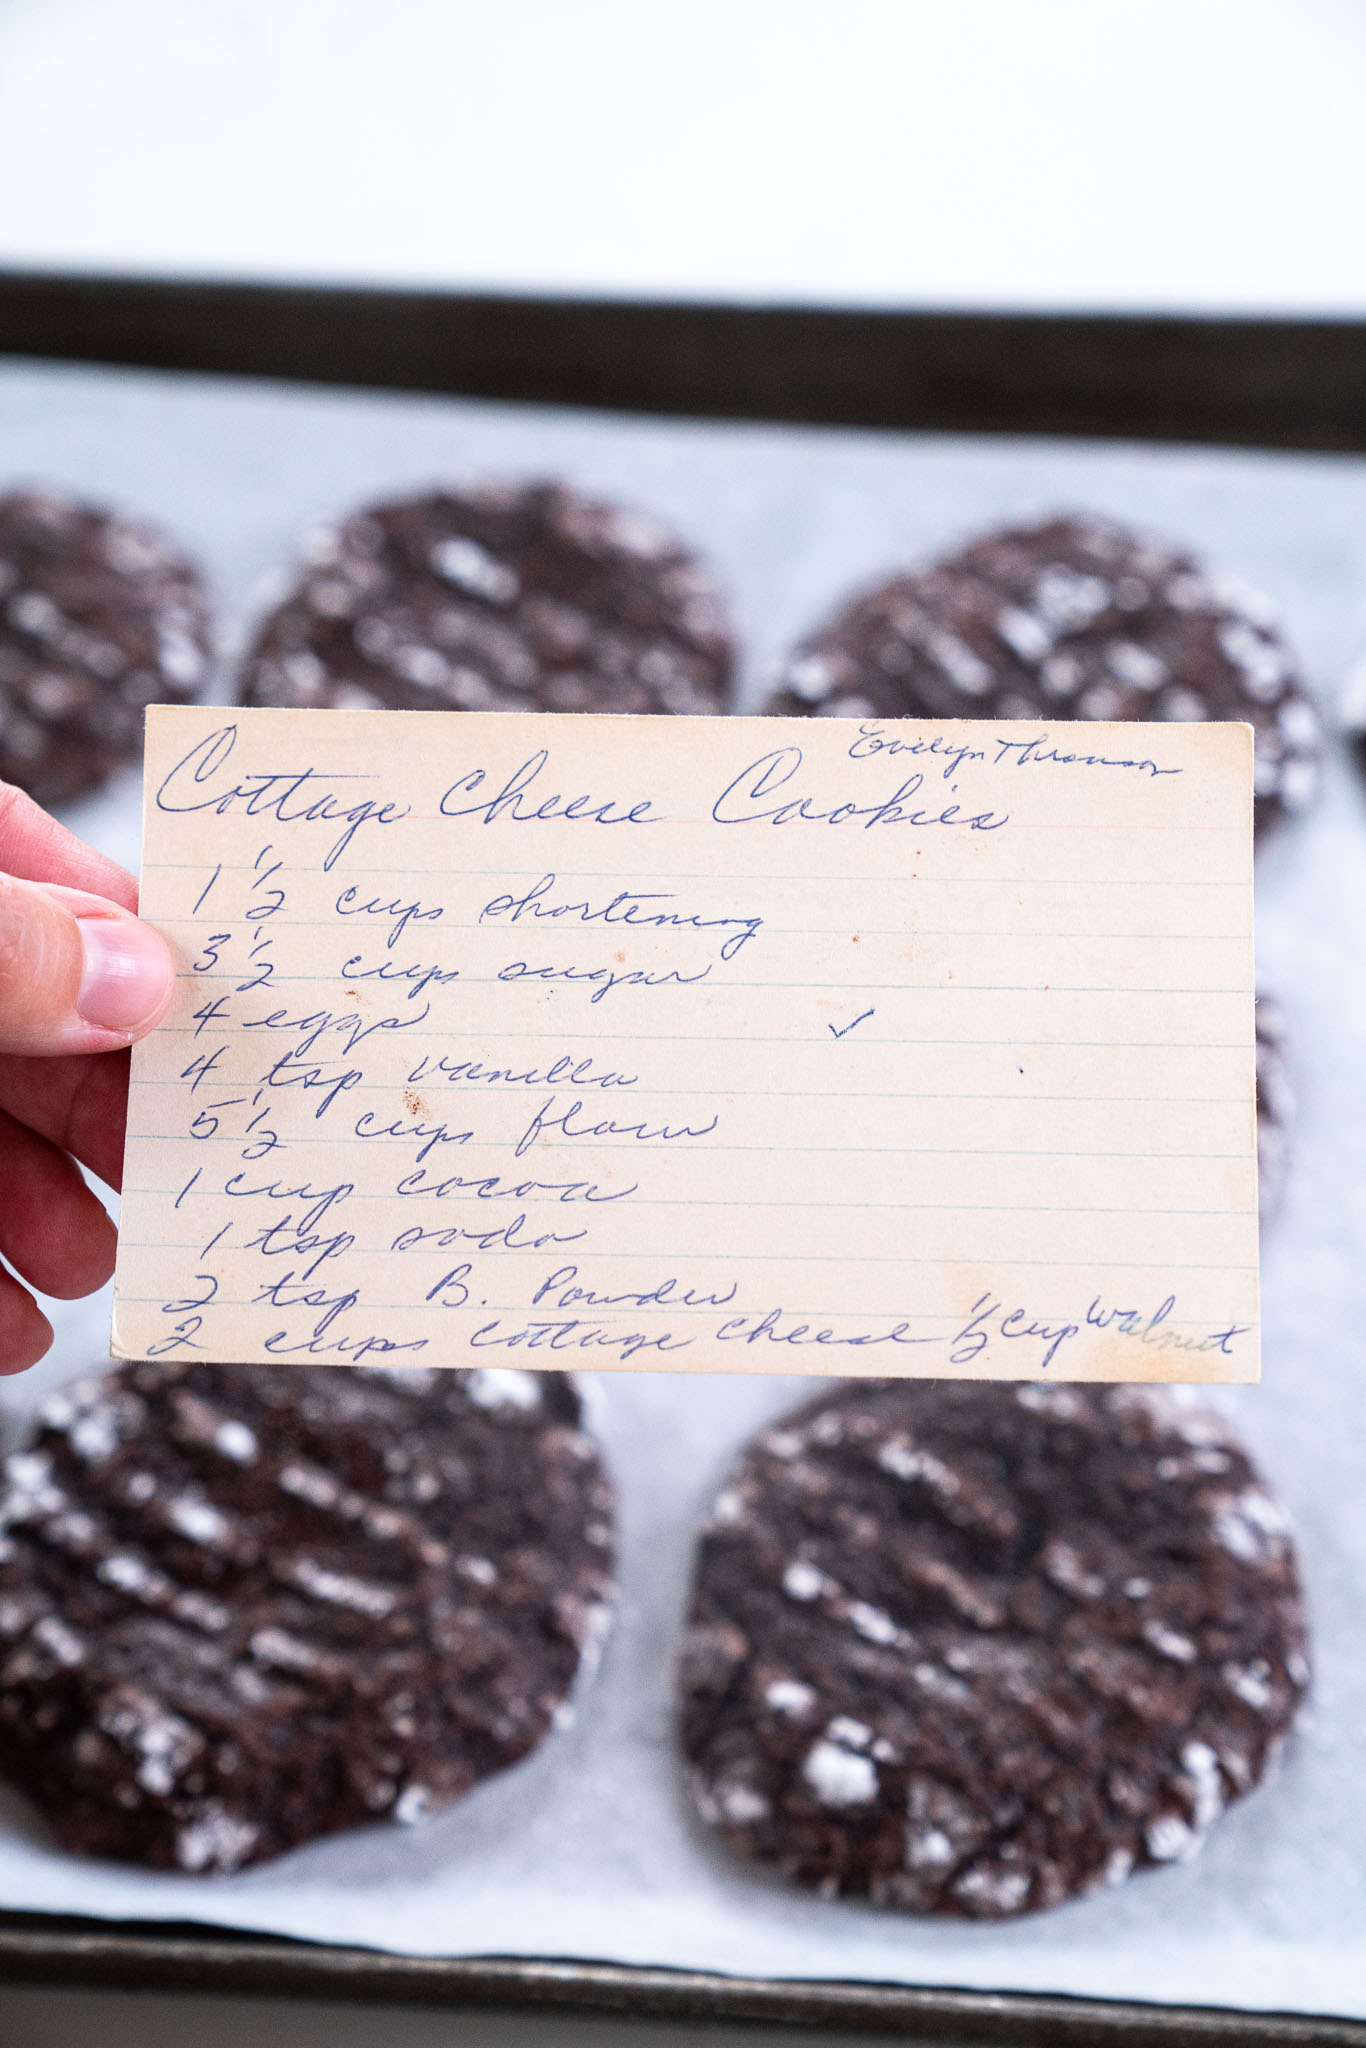 Evelyn Thronson
Cottage Cheese Cookies
1 1/2 cups shortening
3 1/2 cups sugar
4 eggs ✓
4 tsp vanilla
5 1/2 cups flour
1 cup cocoa
1 tsp soda
2 tsp B. Powder
2 cups cottage cheese 1/2 cup walnut